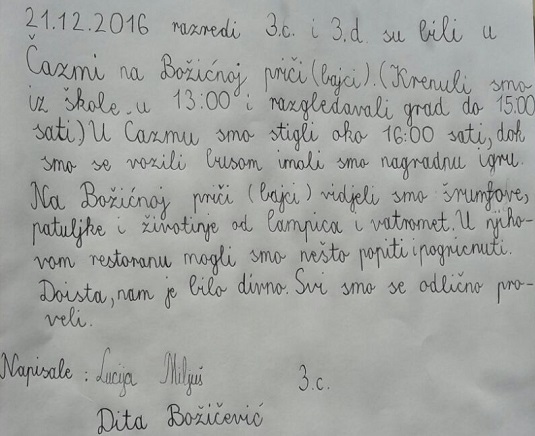 21.12.2016 razredi 3.c. i 3.d. su bili u
Čazmi na Božićnoj priči (bajci). (Krenuli smo
iz škole u 13:00 i razgledavali grad do 15:00
sati) U Čazmu smo stigli oko 16:00 sati, dok
smo se vozili busom imali smo nagradnu igru.
Na Božićnoj priči (bajci) vidjeli smo štrumfove,
patuljke i životinje od lampica i vatromet. U njiho-
vom restoranu mogli smo nešto popiti i pogricnuti.
Doista, nam je bilo divno. Svi smo se odlično pro-
veli.
Napisale : Lucija Miljuš 3.c.
Dita Božičević